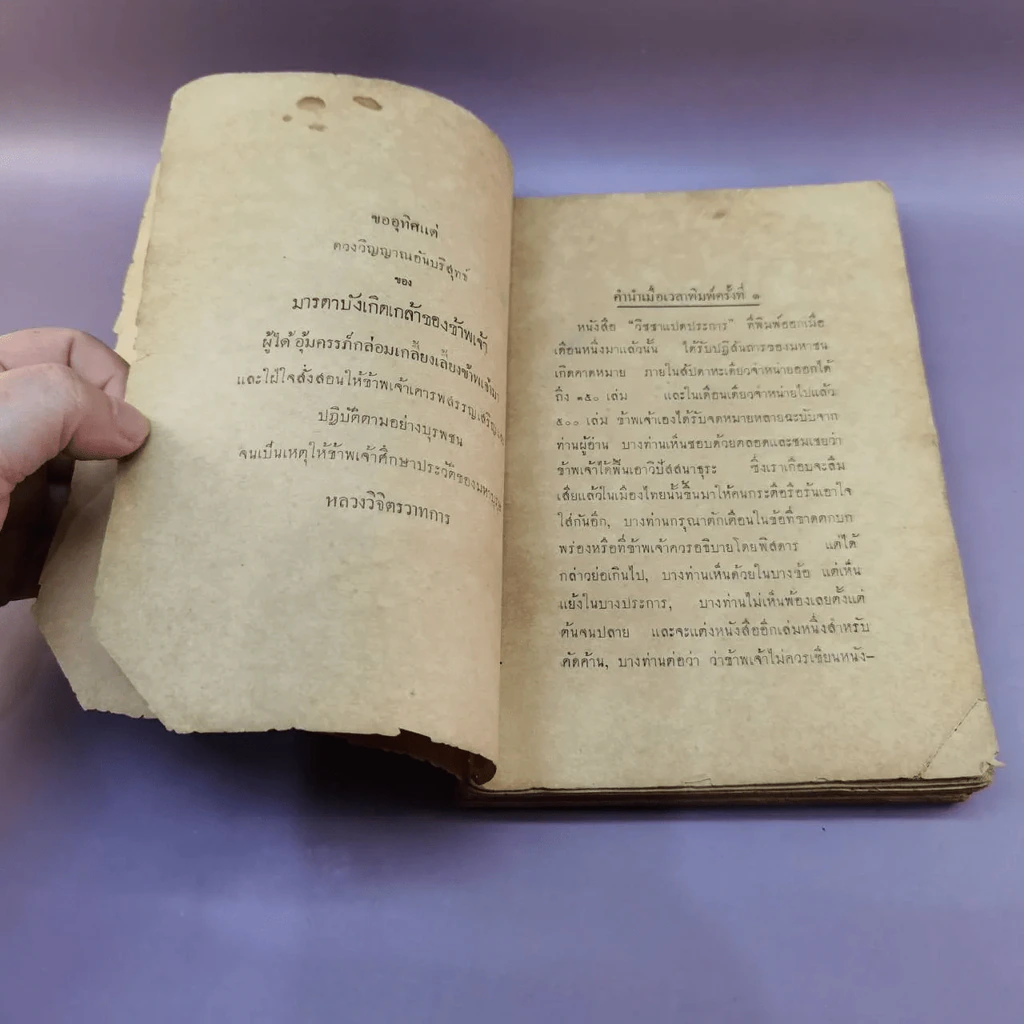 ขออุทิศแด่
ดวงวิญญาณอันบริสุทธ์
ของ
มารดาบังเกิดเกล้าของข้าพเจ้า
ผู้ได้อุ้มครรภ์กล่อมเกลี้ยงเลี้ยงข้าพเจ้า
และใฝ่ใจสั่งสอนให้ข้าพเจ้าเคารพสรรญเสริญ
ปฏิบัติตามอย่างบุรพชน
จนเป็นเหตุให้ข้าพเจ้าศึกษาประวัติของ
หลวงวิจิตรวาทการ
คำนำเมื่อเวลาพิมพ์ครั้งที่ ๑
หนังสือ "วิชชาแปดประการ" ที่พิมพ์ออกเมื่อ
เดือนหนึ่งมาแล้วนั้น ได้รับปฏิสันถารของมหาชน
เกิดคาดหมาย ภายในสัปดาหะเดียวจำหน่ายออกได้
ถึง ๑๕๐ เล่ม และในเดือนเดียวจำหน่ายไปแล้ว
๕๐๐ เล่ม ข้าพเจ้าเองได้รับจดหมายหลายฉะบับจาก
ท่านผู้อ่าน บางท่านเห็นชอบด้วยตลอดและชมเชยว่า
ข้าพเจ้าได้ฟื้นเอาวิปัสสนาธุระ ซึ่งเราเกือบจะลืม
เสียแล้วในเมืองไทยนั้นขึ้นมาให้คนกระตือรือร้นเอาใจ
ใส่กันอีก, บางท่านกรุณาตักเตือนในข้อที่ขาดตกบก
พร่องหรือที่ข้าพเจ้าควรอธิบายโดยพิสดาร แต่ได้
กล่าวย่อเกินไป, บางท่านเห็นด้วยในบางข้อ แต่เห็น
แย้งในบางประการ, บางท่านไม่เห็นพ้องเลยตั้งแต่
ต้นจนปลาย และจะแต่งหนังสืออีกเล่มหนึ่งสำหรับ
คัดค้าน, บางท่านต่อว่า ว่าข้าพเจ้าไม่ควรเขียนหนัง-